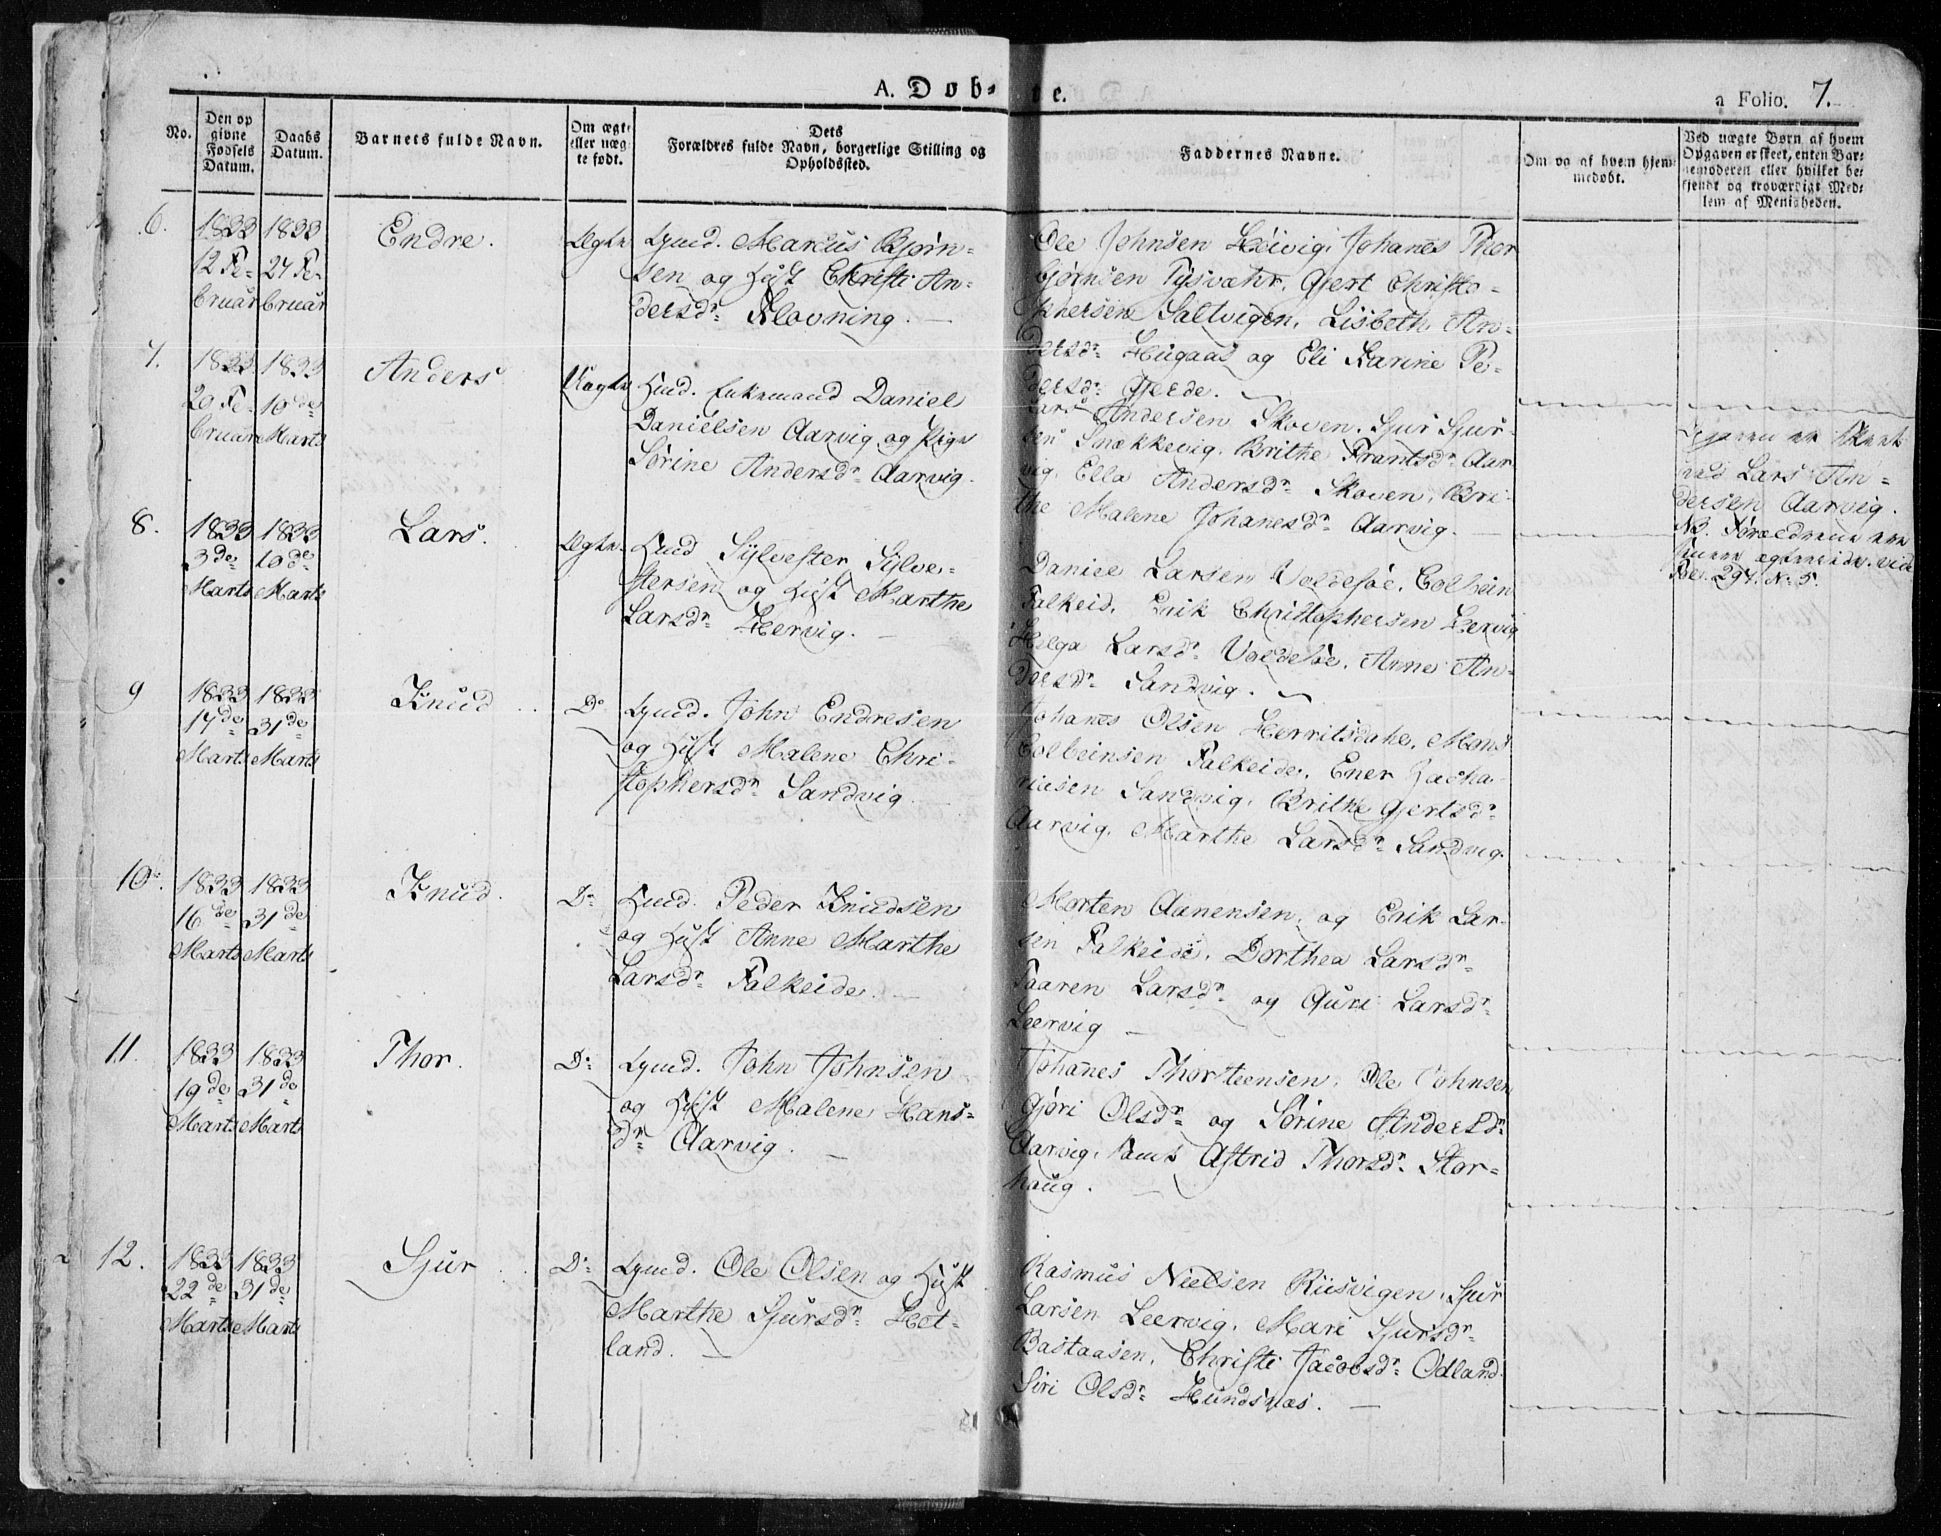 A. Døb-te.
a Folio. 7.
No.
Den opgivne Fødsels Datum.
Daabs Datum.
Barnets fulde Navn.
Om ægte eller uægte født.
Dets Forældres fulde Navn, borgerlige Stilling og Opholdssted.
Faddernes Navne.
Om og af hvem hjemmedøbt.
Ved uægte Børn af hvem Opgaven er skeet, enten Barnemoderen eller hvilket bekjendt og troværdigt Medlem af Menigheden.
6.
1833 12 Februar
1833 24 Februar
Endre.
Ægte
Gmd. Marcus Bjørn-
sen og Hust Christi An-
dersdr Slovning.
Ole Johnsen Høivig, Johanes Thor
bjørnsen Tysvahr, Gjert Christo-
phersen Saltvigen, Lisbeth An-
dersdr Hugaas og Eli Karine Pe-
dersdr Gjerde.
7.
1833 20 Februar
1833 10de Marts
Anders
Uægte
Daniel
Danielsen Aarvig og Pige
Sørine Andersdr Aarvig.
Lars Andersen Skoven, Sjur Sjur-
sen Snækkevig, Brithe Frantsdr Aar
vig, Ella Andersdr Skoven, Bri-
the Malene Johanesdr Aarvig.
ved Lars An-
dersen Aarvig.
NB. Forældrene
Pag. 294. No 5.
8.
1833 3de Marts
1833 10de Marts
Lars.
Ægte.
Sylvester Sylve-
stersen og Hust Marthe
Larsdr Hervig.
Daniel Larsen Valdesøe, Colbein
Falkeid, Erik Christophersen Hervig
Helga Larsdr Valdesøe, Anne An-
dersdr Sandvig.
9
1833 17de Marts
1833 31de Marts
Knud
Do
Gmd. John Endresen
og Hust Malene Chri-
stophersdr Sandvig
Johanes Olsen Hervilsdahl, Mons
Colbeinsen Falkeide, Ener Zacha-
riasen Sandvig, Brithe Gjertsdr
Aarvig, Marthe Larsdr Sandvig.
10.
1833 16de Marts
1833 31de Marts
Knud.
Do
Peder Knudsen
og Hust Anne Marthe
Larsdr Falkeide.
Morten Aanensen, og Erik Lar-
sen Falkeide, Dorthea Larsdr
Taaren Larsdr og Guri Larsdr
Leervig
11.
1833 19de Marts
1833 31de Marts
Thor.
Do
Gmd. John Johnsen
og Hust Malene Hans-
dr Aarvig.
Johanes Thorsteensen, Ole Johnsen
Gjøri Olsdr og Sørine Andersdr
Aarvig, samt Astrid Thorsdr Stor-
haug.
12.
1833 22de Marts
1833 31de Marts
Sjur
Do
Gmd. Ole Olsen og Hust
Marthe Sjursdr Het-
land.
Rasmus Nielsen Riisvigen, Sjur
Larsen Leervig, Mari Sjursdr
Bastaasen, Christi Jacobsdr Odland
Siri Olsdr Hundsnæs.